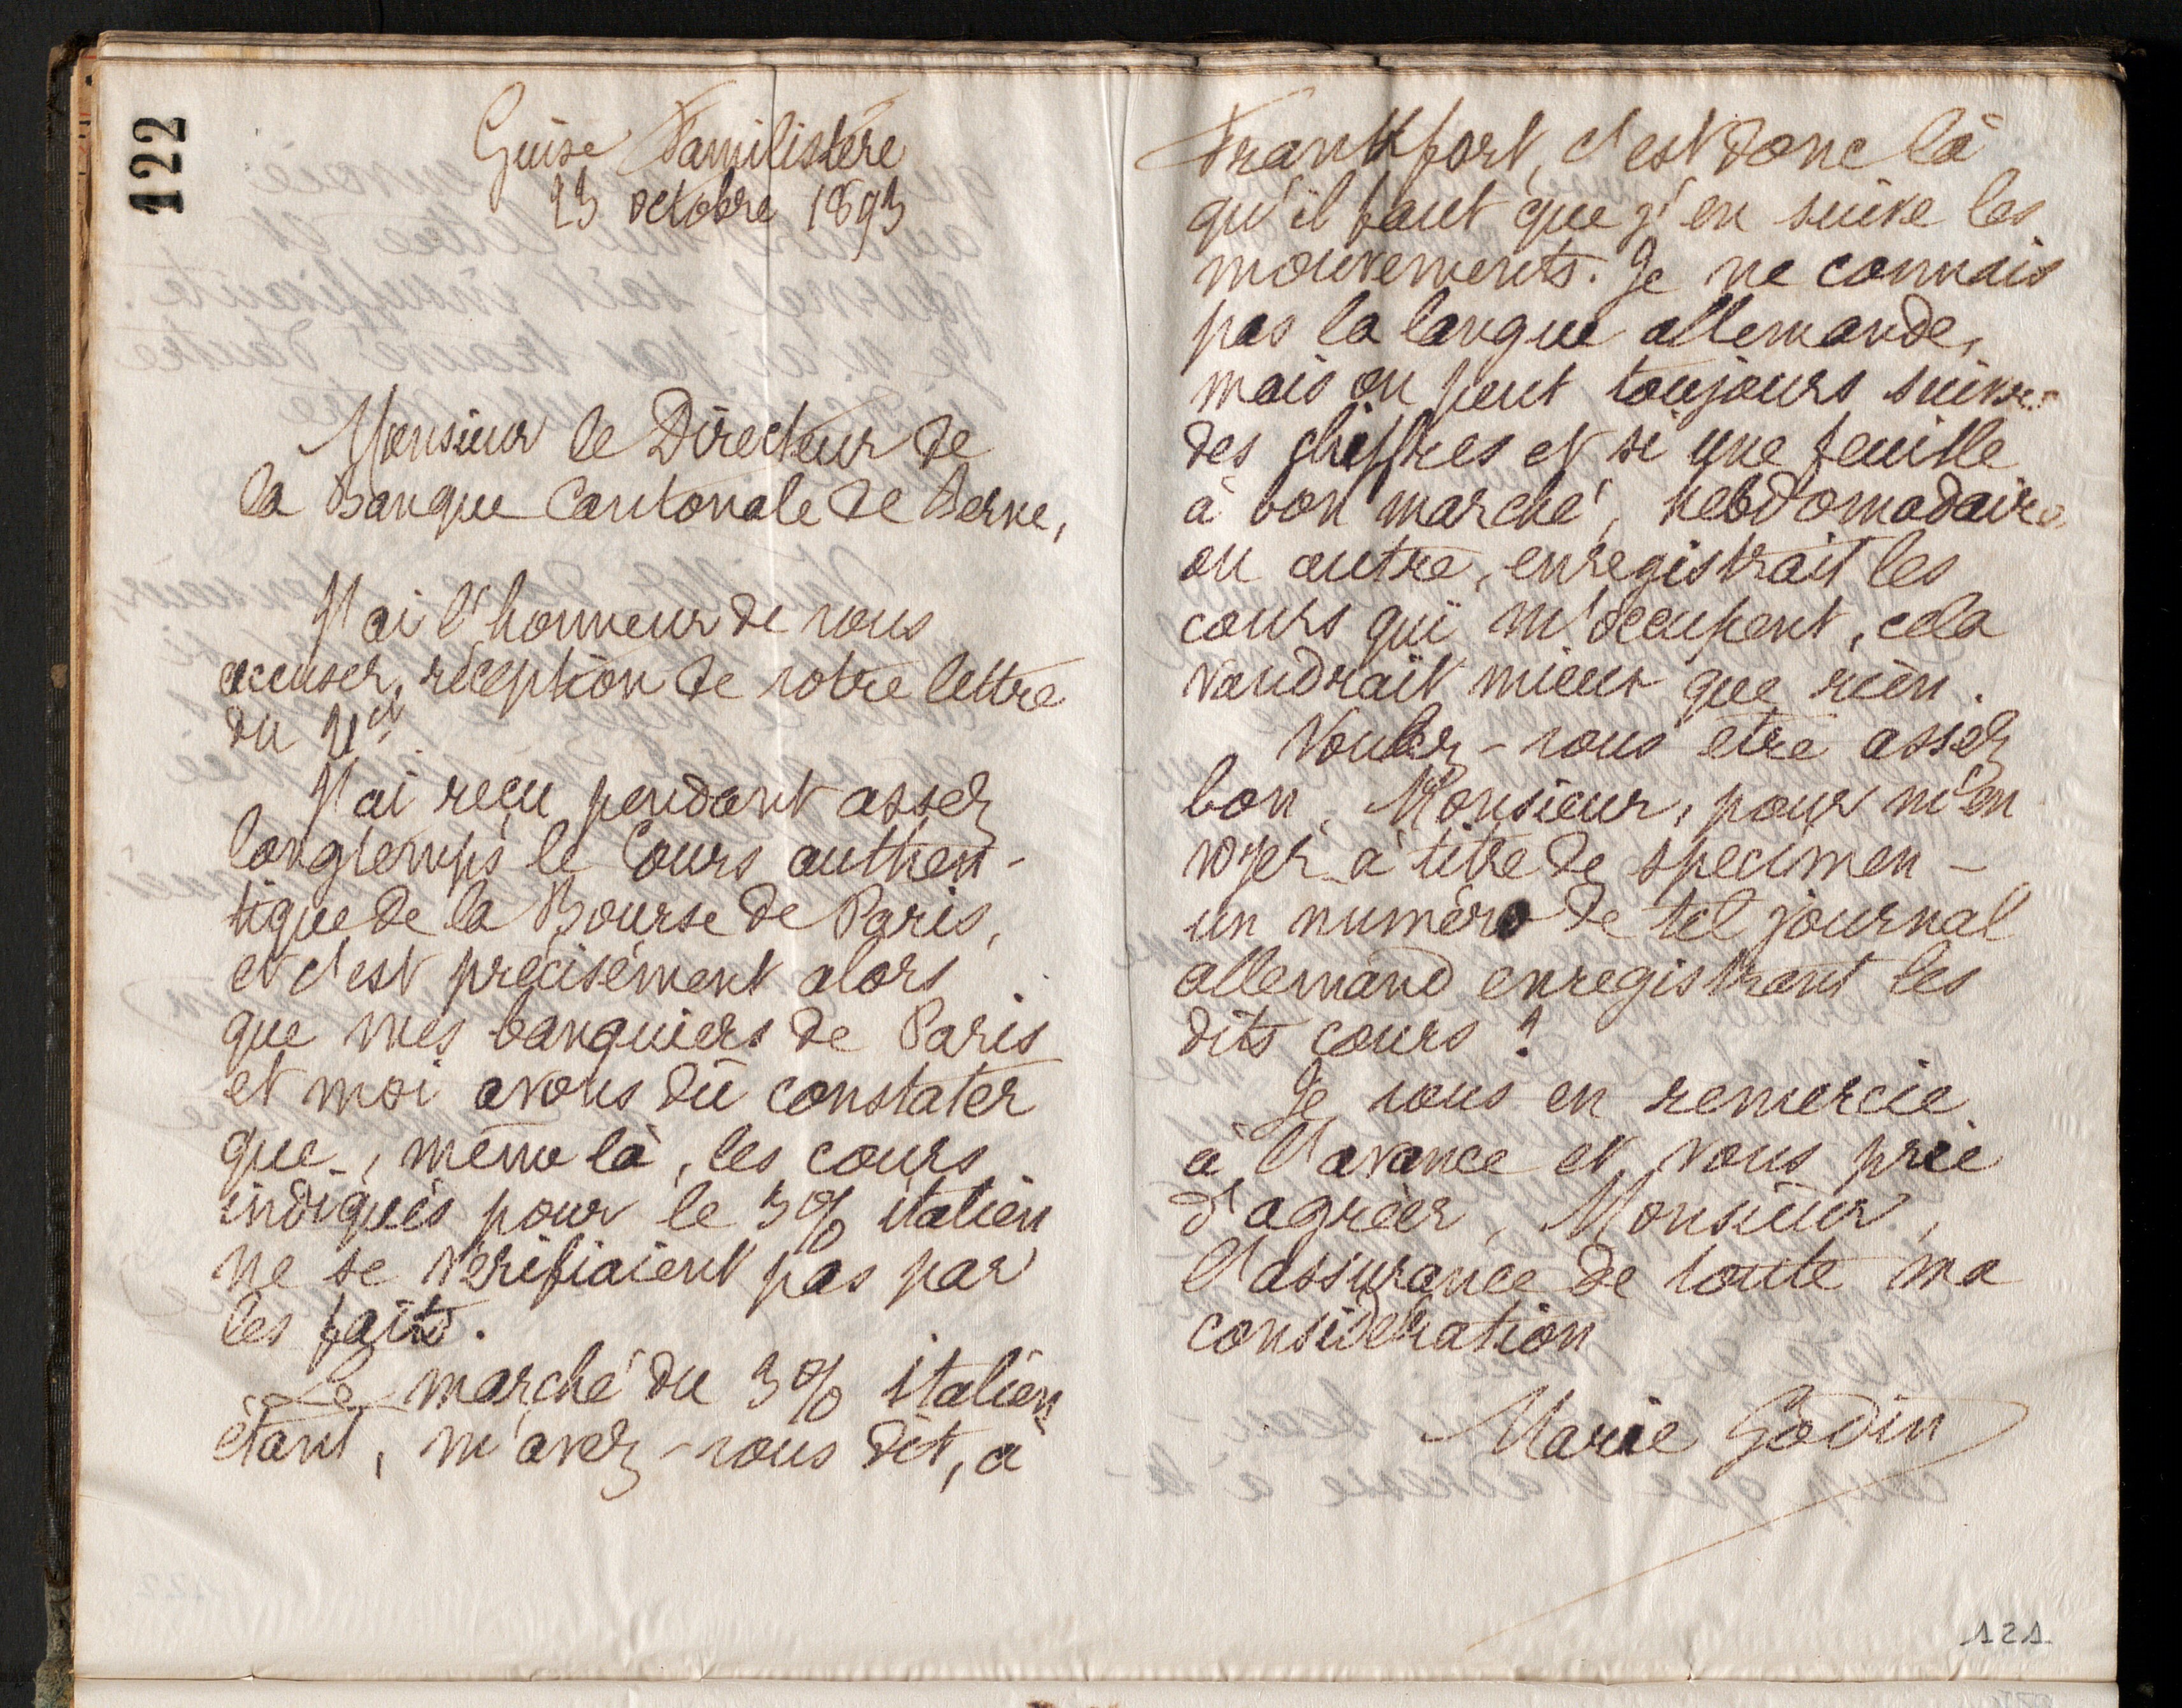 122
Guise Familistère
23 octobre 1893
Monsieur le Directeur de
la Banque Cantonale de Berne,
J'ai l'honneur de vous
accuser réception de votre lettre
du 21 ct
J'ai reçu pendant assez
longtemps le Cours authen-
tique de la Bourse de Paris,
et c'est précisément alors
que mes banquiers de Paris
et moi avons dû constater
que, même là, les cours
indiqués pour le 3% italien
ne se vérifiaient pas par
les faits.
Le marché du 3% italien
étant, m'avez-vous dit, à
Frankfort, c'est donc là
qu'il faut que j'en suive les
mouvements. Je ne connais
pas la langue allemande,
mais on peut toujours suivre
des chiffres et si une feuille
à bon marché, hebdomadaire
ou autre, enregistrait les
cours qui m'occupent, cela
vaudrait mieux que rien.
Voulez-vous être assez
bon, Monsieur, pour m'en
voyer à titre de specimen -
un numéro de tel journal
allemand enregistrant les
dits cours ?
Je vous en remercie
à l'avance et vous prie
d'agréer, Monsieur,
l'assurance de toute ma
considération
Marie Godin
121